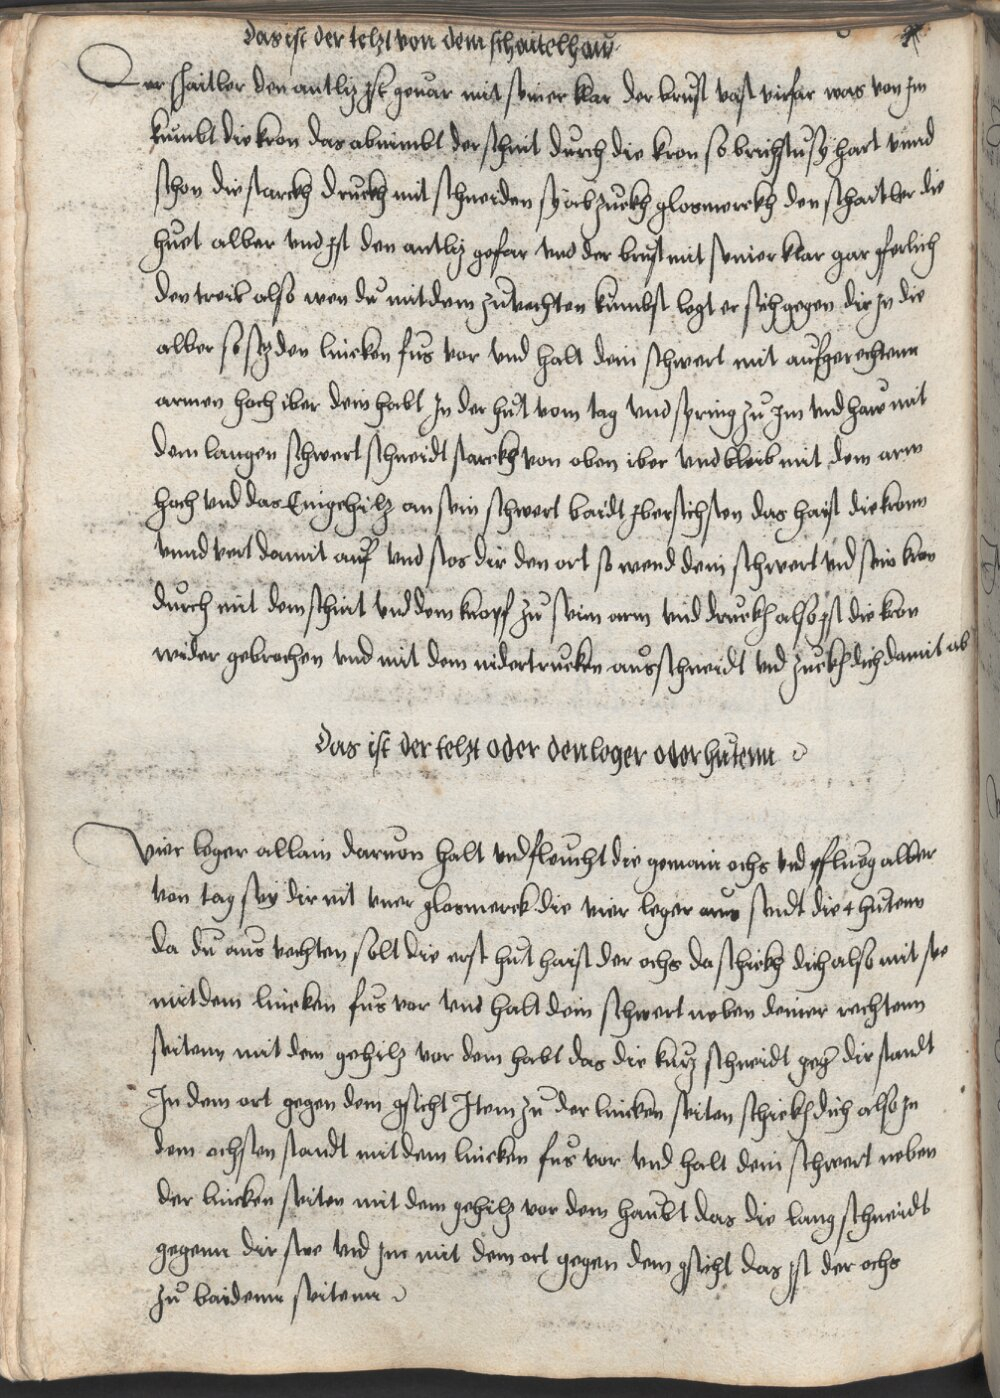 das ist der telzt von dem schaitelhaw
Der schaitler den antlitz ist gevar mit seiner kar der brust vast virfar was von Im
kumbt die kron das abnimbt der schnit durch die kron so brichstu sy hart vnnd
schon die starckh druckh mit schneiden sy ab zuckh glosmerckh den schaitler die
huet alber vnd ist den antlitz gefar vnd der brust mit seiner klar gar gferlich
den treib also wen du mit dem zuvechten kumbst legt er sich gegen dir in die
alber so setz den lincken fus vor vnd halt dein schwert mit aufgerechtenn
armen hoch iber dein habt In der hut vom tag vnd spring zu Im vnd haw mit
dem langen schwert schneidt starckh von oben iber vnd bleib mit dem arm
hoch vnd das Eingehiltz an sein schwert baidt ibersichsten das haist die kron
vnnd vert damit auf vnd stos dir den ort so wend dein schwert vnd sein kron
durch mit dem schnit vnd dem knopf zu seim arm vnd druckh also ist die kron
wider gebrochen vnd mit dem nidertrucken ausschneidt vnd zuckh dich damit ab
Das ist der telzt oder den leger oder hutenn
Vier leger allain darvon halt vnd fleucht die gemain ochs vnd pflueg alber
von tag sey dir nit vner glosmerck die vier leger aus sendt die 4 hutenn
da du aus vechten solt die erst hut haist der ochs da schickh dich also mit ste
mit dem lincken fus vor vnd halt dein schwert neben deiner rechtenn
seitenn mit dem gehiltz vor dem habt das die kurz schneidt gegen dir standt
In dem ort gegen dem gsicht Item zu der lincken seiten schickh dich also in
dem ochsen standt mit dem lincken fus vor vnd halt dein schwert neben
der lincken seiten mit dem gehiltz vor dem haubt das die lang schneidt
gegenn dir ste vnd im mit dem ort gegen dem gsicht das ist der ochs
zu baidenn seitenn